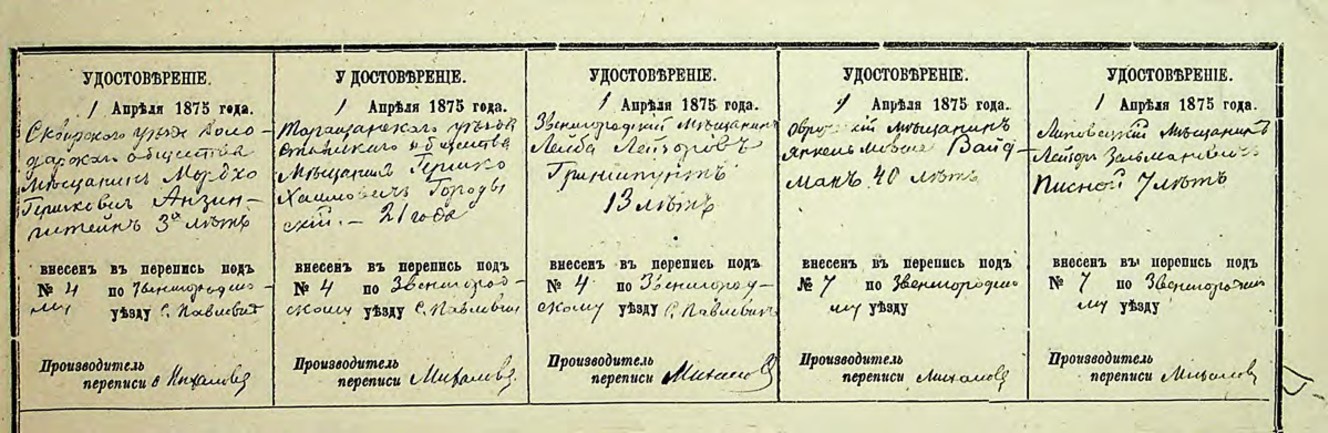 УДОСТОВѢРЕНІЕ.
1 Апрѣля 1875 года.
Сквирскаго уѣзда Воло-
дарскаго общества
Мѣщанинъ Мордко
Гершковичъ
3х лѣтъ
внесенъ въ перепись подъ
№ 4 по Звенигородско-
му уѣзду С. Павловка
Производитель
переписи
У ДОСТОВѢРЕНІЕ.
1 Апрѣля 1875 года.
Таращанскаго уѣзда
общества
Мѣщанинъ Гершко
Городы
скій. — 21 года
внесенъ въ перепись подъ
№ 4 по Звенигород-
скому уѣзду С. Павловка
Производитель
переписи Михалова
УДОСТОВѢРЕНІЕ.
1 Апрѣля 1875 года.
Звенигородскій Мѣщанинъ
Лейба Лейзоровъ
13 лѣтъ
внесенъ въ перепись подъ
№ 4 по Звенигород-
скому уѣзду С. Павловка
Производитель
переписи
УДОСТОВѢРЕНІЕ.
1 Апрѣля 1875 года.
Мѣщанинъ
Янкель Вайд-
манъ 40 лѣтъ
внесенъ въ перепись подъ
№ 7 по Звенигородско
му уѣзду
Производитель
переписи Михалова
УДОСТОВѢРЕНІЕ.
1 Апрѣля 1875 года.
Липовецкій Мѣщанинъ
Лейзоръ Зельмановичъ
Писной 7 лѣтъ
внесенъ въ перепись подъ
№ 7 по Звенигородско
му уѣзду
Производитель
переписи Михалова